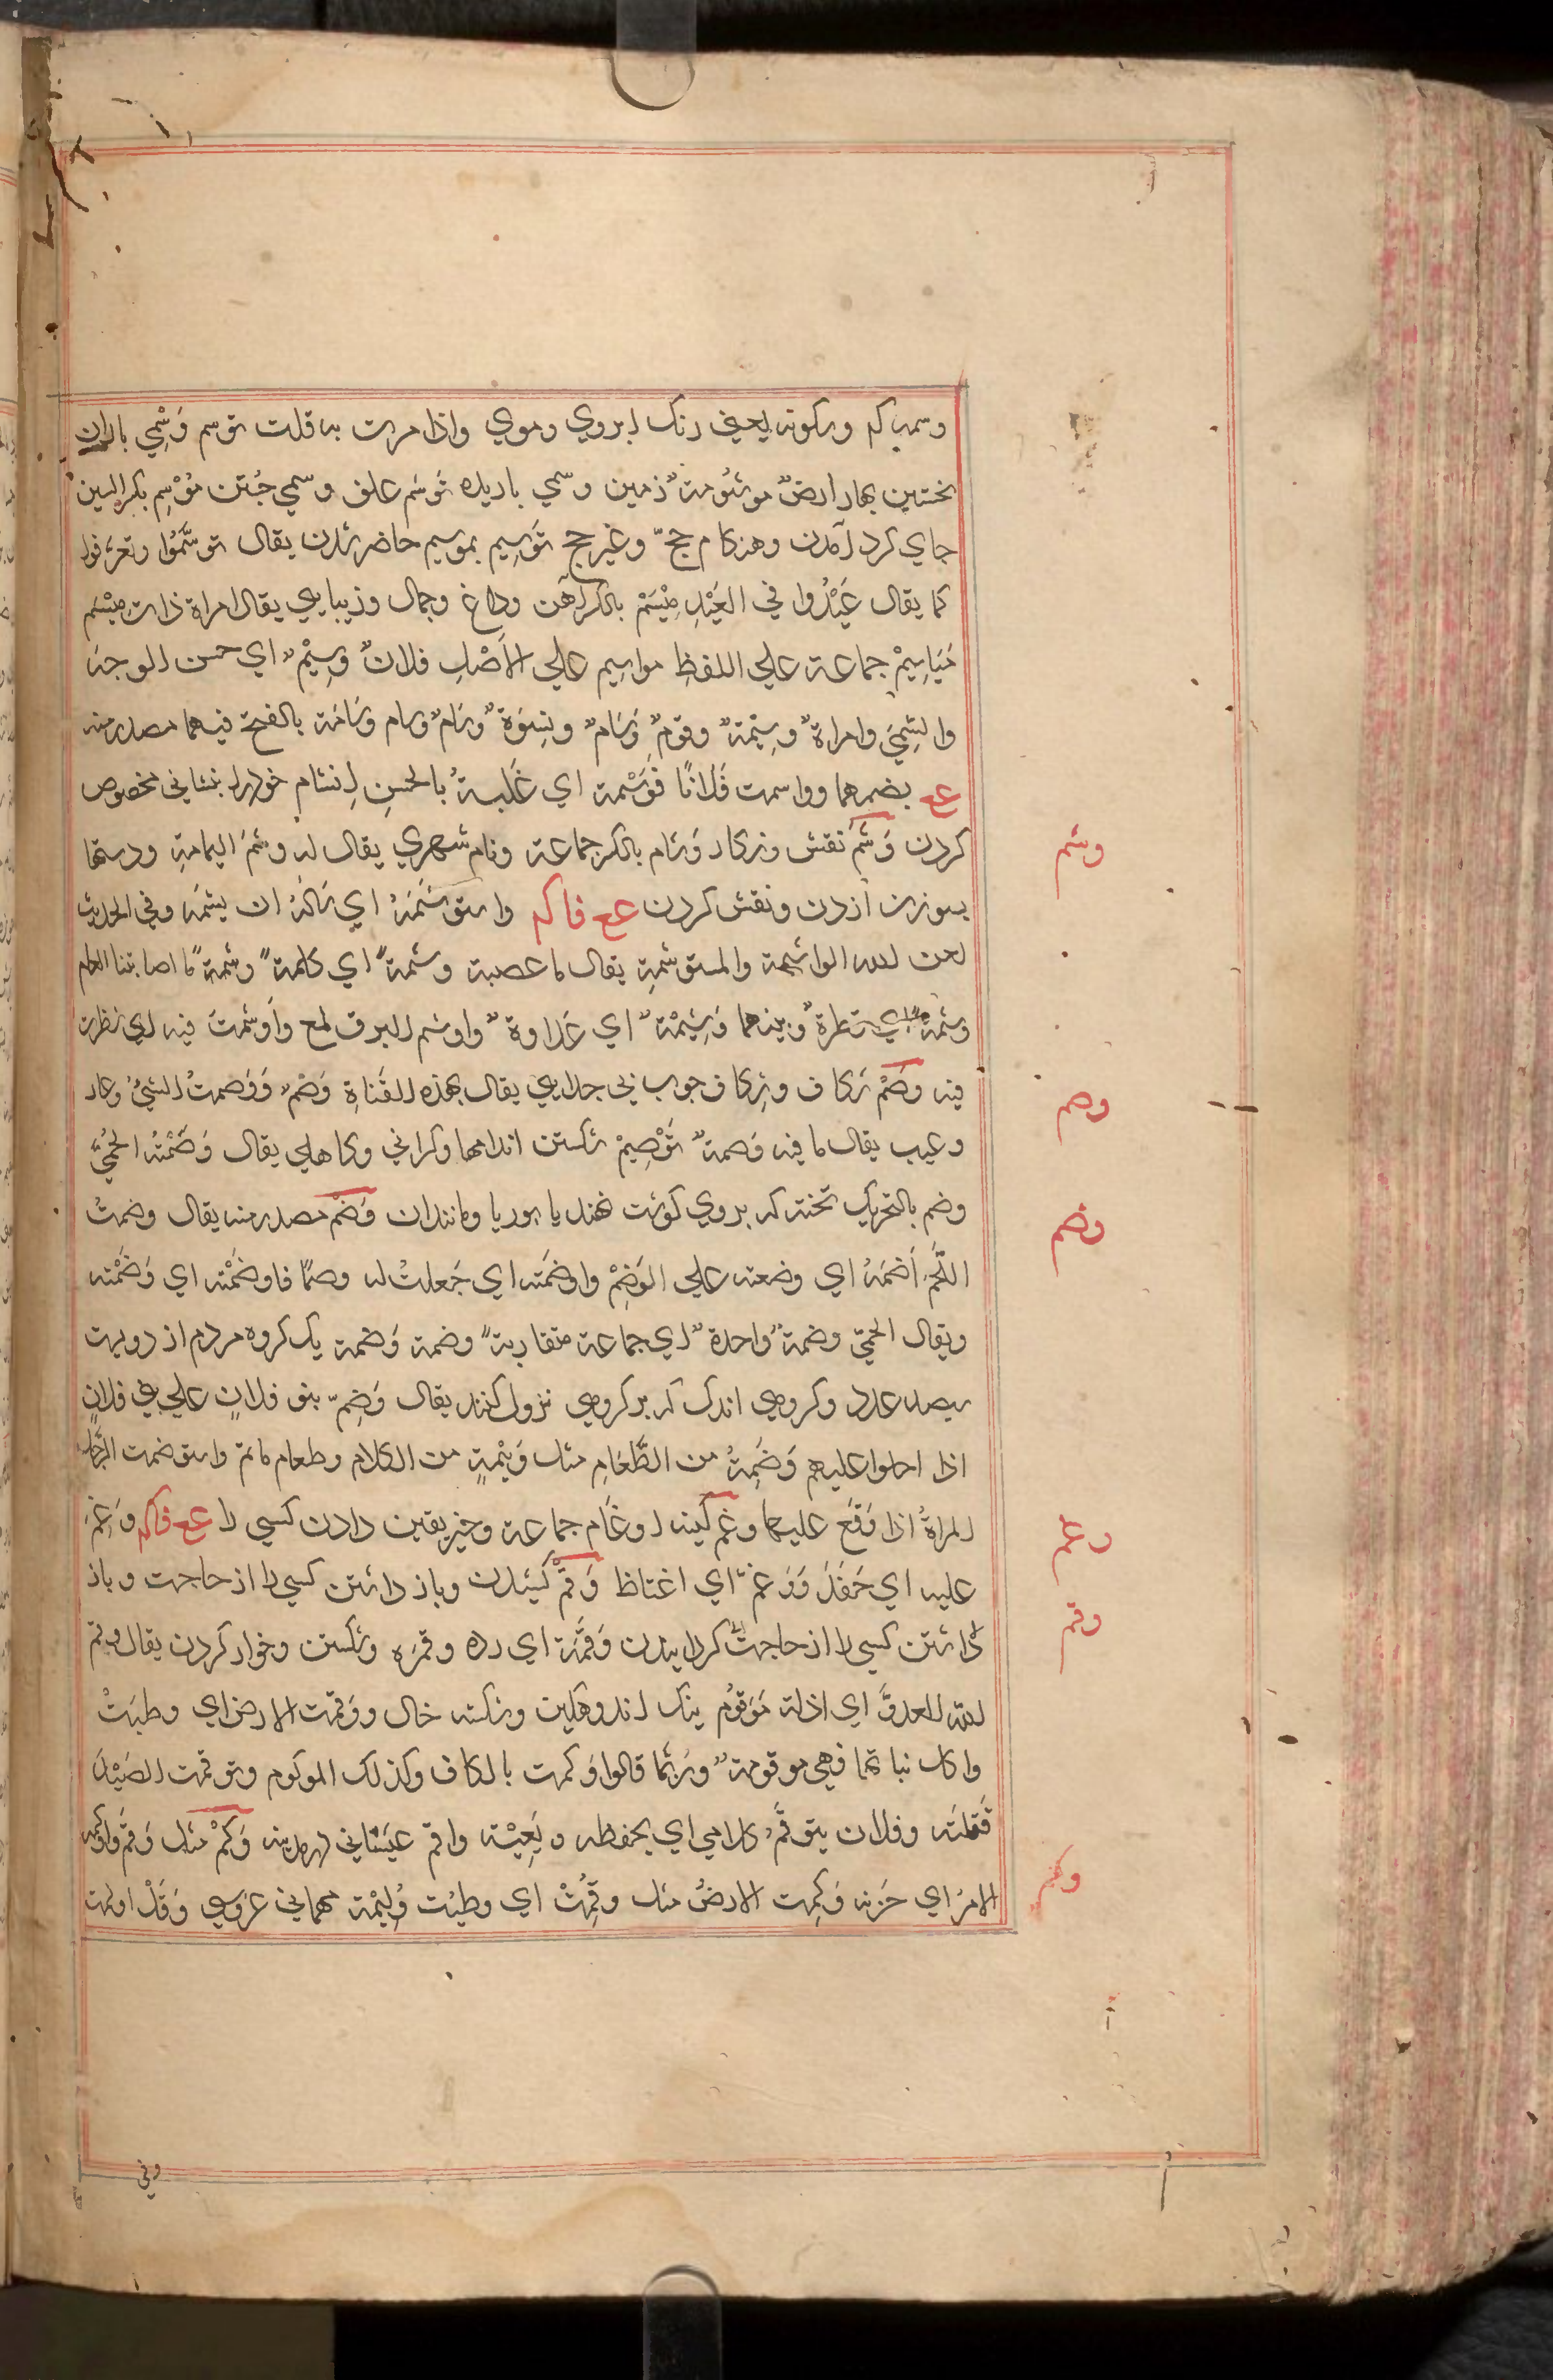 وسمه بکسر وسکون یعنی رنک ابروی وموی واذا مرت به قلت توسم وَسْمِي باران
نخستین بهار ارضٌ موسُومةٌ زمین وسمي باریده تَوسُم علف وسمي جُستن مَوْسِم بکسر السین
جای کرد آمدن وهنکام حجّ وغیر حج تَوسِیم بموسیم حاضر شدن یقال توسَّمُوا وتعرفوا
کما یقال عَیَّدُوا في العَیْدِ مِیْسَمْ بالکسر آهن وداغ وجمال وزیبایي یقال امراة ذات مِیْسَم
مَیَاسِیمْ جماعة علي اللفظِ مواسیم علي الاَصْلِ فلانٌ وسِیْمٌ اي حسن الوجه
والسِیْمَي وامراةٌ وسِیْمَةٌ وقومٌ وَسَامٌ ونِسوَةٌ وَسَامٌ وسام وسَامَة بالفتح فیهما مصدر منه
عع بضمهما وواسمت فَلَانًا فَوَسْمة اي غَلَبتهُ بالحسنِ اِتسَام خودرا بنشاني مخصوص
کردن وَشْم نقش ونکار وَشَام بالکسر جماعة ونام شهري یقال له وشمَ الیمامةِ ودستها
بسوزن ازدن ونقش کردن عع فا کم واستوشَمَهُ اي سَالَهُ ان یشمه وفي الحدیث
لعن الله الواشِمة والمستوشمةِ یقال ما عصیته وشْمةً اي کلمةً وشْمةً ما اصابتنا العام
وشمة اي قطرة وبینهما وَشِیْمَةٌ اي عَدَاوة واوشم البرق لمع واَوشَمْتَ فیه اي نظرت
فیه وصْمْ شکاف وشکاف چوب بي جدایي یقال بهذه القَناةِ وَصْمٌ وَوَصمتُ الشيُ وعار
وعیب یقال ما فیه وَصمةٌ تَوْصِیمْ شکستن اندامها وکراني وکاهلي یقال وَصَّمْتُه الحُمّي
وضم بالتحریک تخته که بروي کوشت نهند یا بوریا ومانند ان وَضْم مصدر منه یقال وضمتُ
اللَّحْمَ اَضمَهُ اي وضعته علي الوَضَمْ واوضَمته اي جَعلتُ له وضمًا فاوضَمْته اي وَضَمْته
ویقال الحيّ وضمةٌ واحدةٌ اي جماعة متقاربةً وضمة وَضمة یک کروه مردم از دویست
سیصد عدد وکروهي اندک که بر کروهي نزول کنند یقال وَضِمّ بنو فلانٍ علي بني فلانٍ
اذا احلوا علیهم وَضَیْمةُ من الطَّعَامِ مثل وَثِیْمةٍ من الکلام وطعام ماتم واستوضمت الرَّجُل
المراةُ اذا وَقَعَ علیها وغم کینه اوغَام جماعة وخبر یقین دادن کسي را عع فا کم وَغَمَ
علیه اي حَقَدَ وَوَغمّ اي اغتاظ وَقْم کشیدن وباز داشتن کسي را از حاجت وباز
داشتن کسي را از حاجت کردا نیدن وَقَمَهُ اي رده وقهَره وشکستن وخوار کردن یقال وقم
الله العدوَّ اي اذله مَوقوُم نیک اندوهکین وشکسته حال ووَقمت الارض اي وطیَتْ
واکل نباتها فهي موقومةٌ ورَبّما قالوا وَکمت بالکاف وکذلک الموکوم وتوقمت الصَیْدَ
قَتلته وفلان یتوقَّمُ کلامي اي یحفظه ویَعِیْه واقم وَکْمْ مثل وَقْم واوکمه
الامرُ اي حَزنه وَکِمت الارضُ مثل وقِمُتْ اي وطیَت وُلِیْمة مهماني عروسي وَقَدْ اولمت
وشم
وصم
وضم
وغم
وقم
وکم
وفي